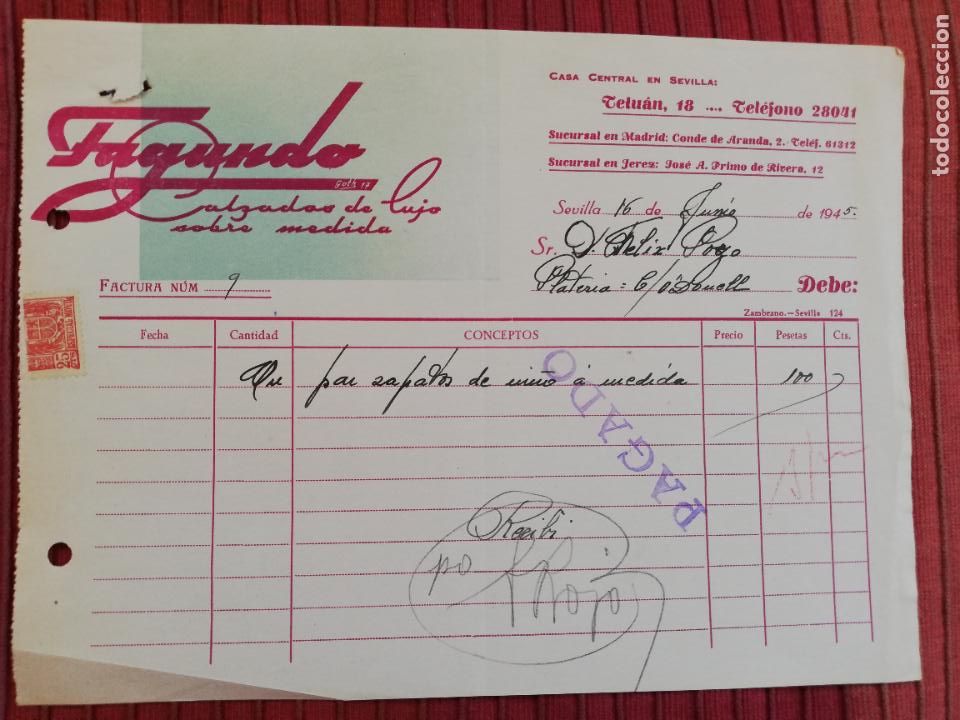 Fagundo
Calzados de lujo
sobre medida
CASA CENTRAL EN SEVILLA:
Tetuán, 18 .... Teléfono 28041
Sucursal en Madrid: Conde de Aranda, 2. Teléf. 61312
Sucursal en Jerez: José A. Primo de Rivera, 12
Sevilla 16 de Junio de 1945.
Sr. D. Felix Pozo
FACTURA NÚM 9
Plateria = C/ O'Donell Debe:
Zambrano.—Sevilla 124
Fecha Cantidad CONCEPTOS Precio Pesetas Cts.
Un par zapatos de niño á medida 100
PAGADO
Recibí
po
25
todocoleccion